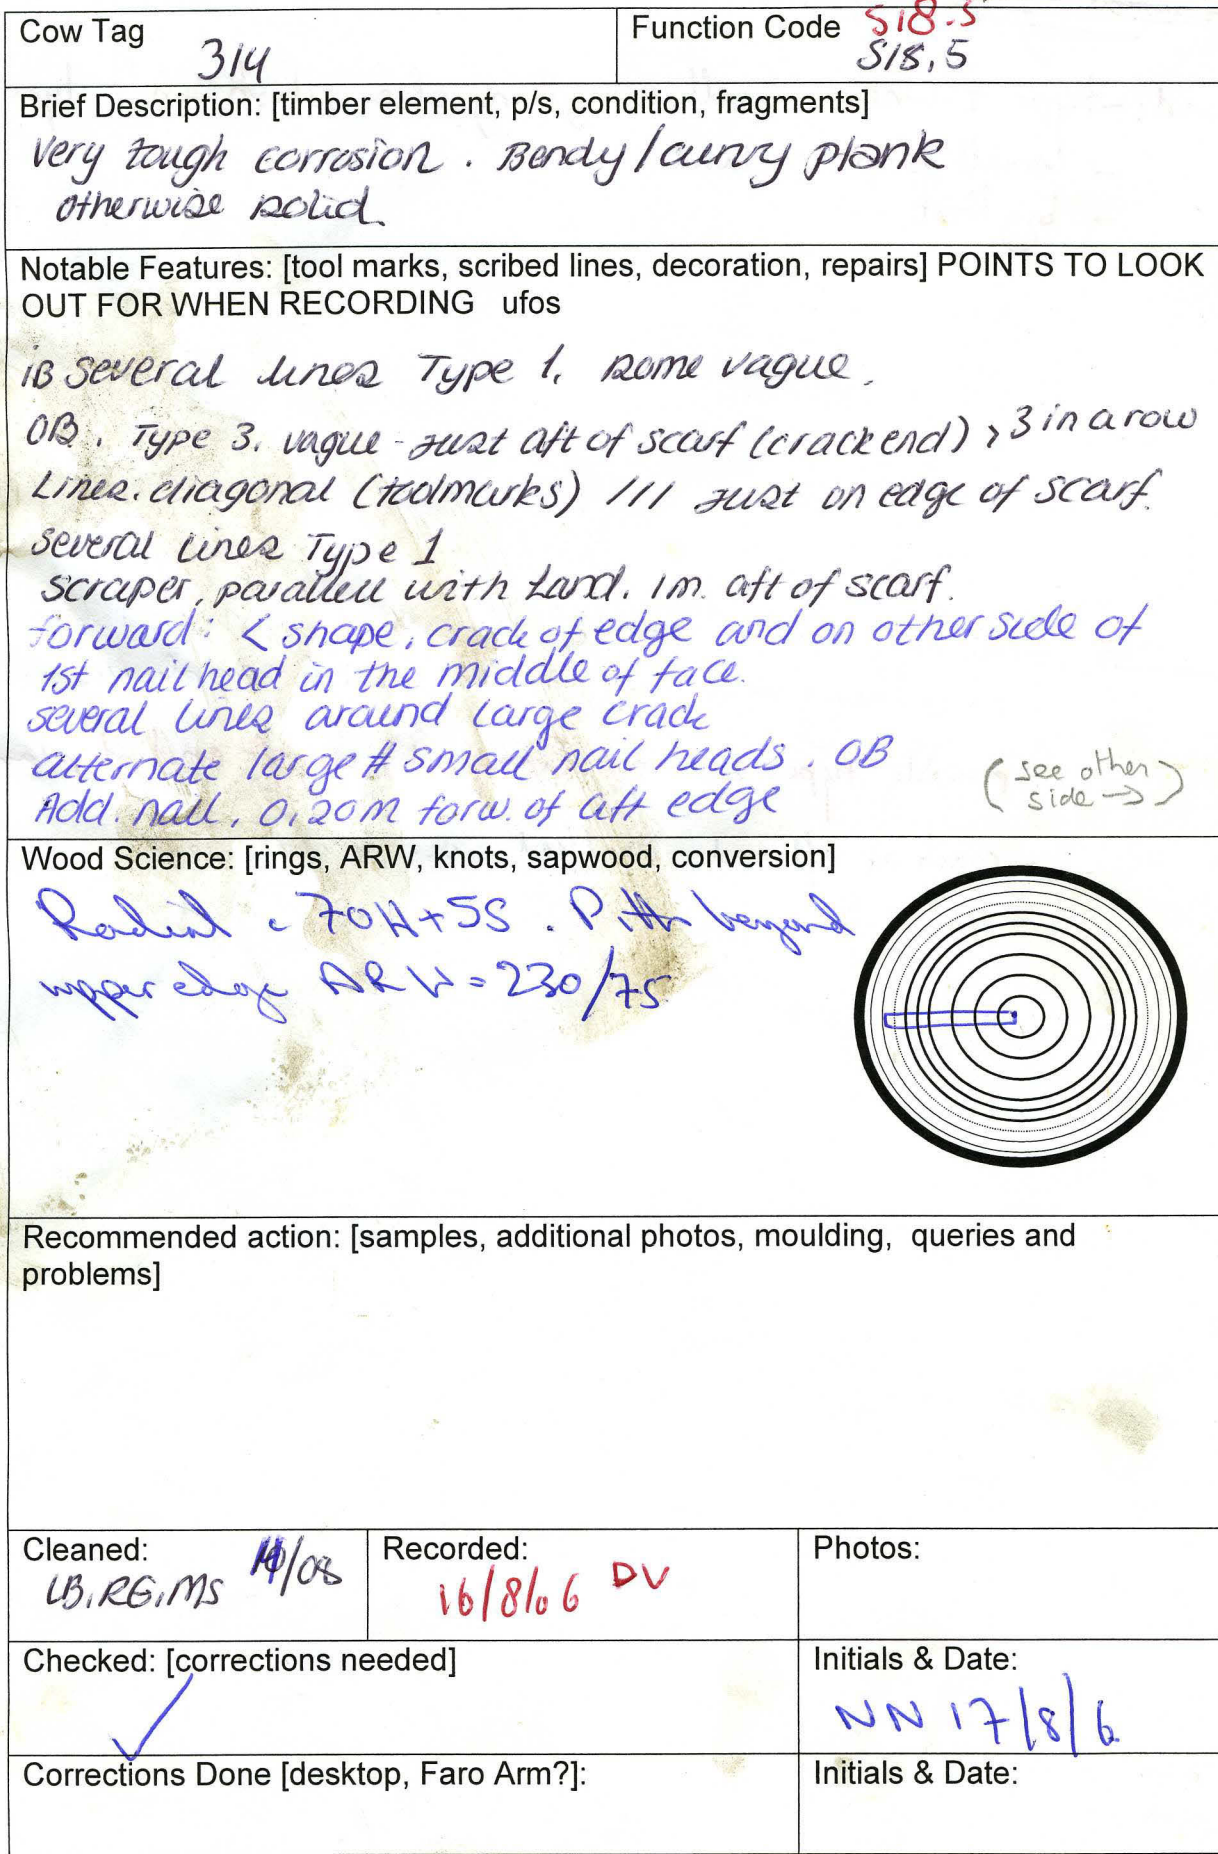 Cow Tag
314
Function Code S18.5
S18,5
Brief Description: [timber element, p/s, condition, fragments]
Very tough corrosion. Bendy/curvy plank
otherwise solid
Notable Features: [tool marks, scribed lines, decoration, repairs] POINTS TO LOOK
OUT FOR WHEN RECORDING ufos
iB Several lines Type 1, some vague,
OB. Type 3. vague - just aft of scarf (crack end), 3 in a row
Lines. diagonal (toolmarks) /// just on edge of scarf.
several lines Type 1
scraper, parallell with Land. 1m. aft of scarf.
forward: < shape, crack of edge and on other side of
1st nail head in the middle of face.
several lines around large crack
alternate large # small nail heads. OB
Add. nail, 0,20m forw. of aft edge
(see other
side →)
Wood Science: [rings, ARW, knots, sapwood, conversion]
Radial c 70H+5S. Pith beyond
upper edge ARW = 230/75
Recommended action: [samples, additional photos, moulding, queries and
problems]
Cleaned: /08
LB, RG, MS
Recorded:
16/8/06 DV
Photos:
Checked: [corrections needed]
✓
Initials & Date:
NN 17/8/6
Corrections Done [desktop, Faro Arm?]:
Initials & Date: